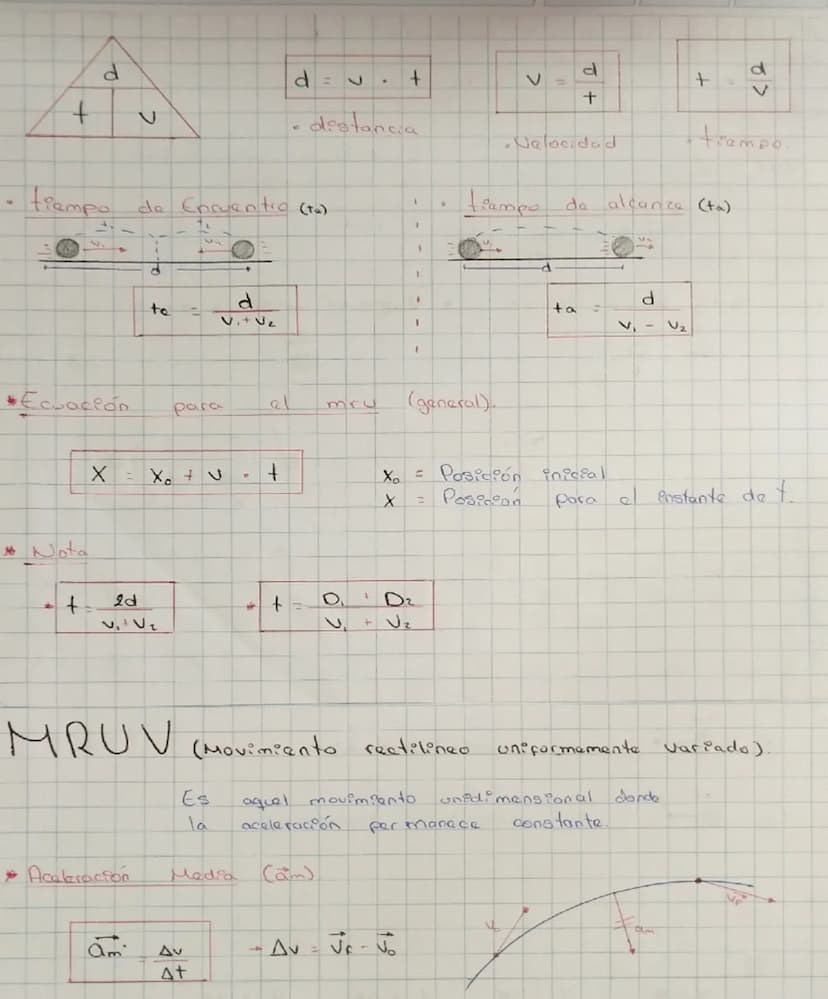 d
t v
d = v · t
v = d/t
t = d/v
· distancia
· Velocidad
· tiempo
· tiempo de Encuentro (te)
· tiempo de alcance (ta)
t₁ t₂
v₁ v₂
v₁ v₂
d
d
te = d/(v₁+v₂)
ta = d/(v₁ - v₂)
* Ecuación para el mru (general).
X = X₀ + v · t
X₀ = Posición inicial
X = Posición para el instante de t.
* Nota
t = 2d/(v₁+v₂)
t = (D₁ + D₂)/(V₁ + V₂)
MRUV (Movimiento rectilineo uniformemente variado).
Es aquel movimiento unidimensional donde
la aceleración permanece constante.
* Aceleración Media (a⃗m)
a⃗m = Δv/Δt
→ Δv = V⃗f - V⃗o
am